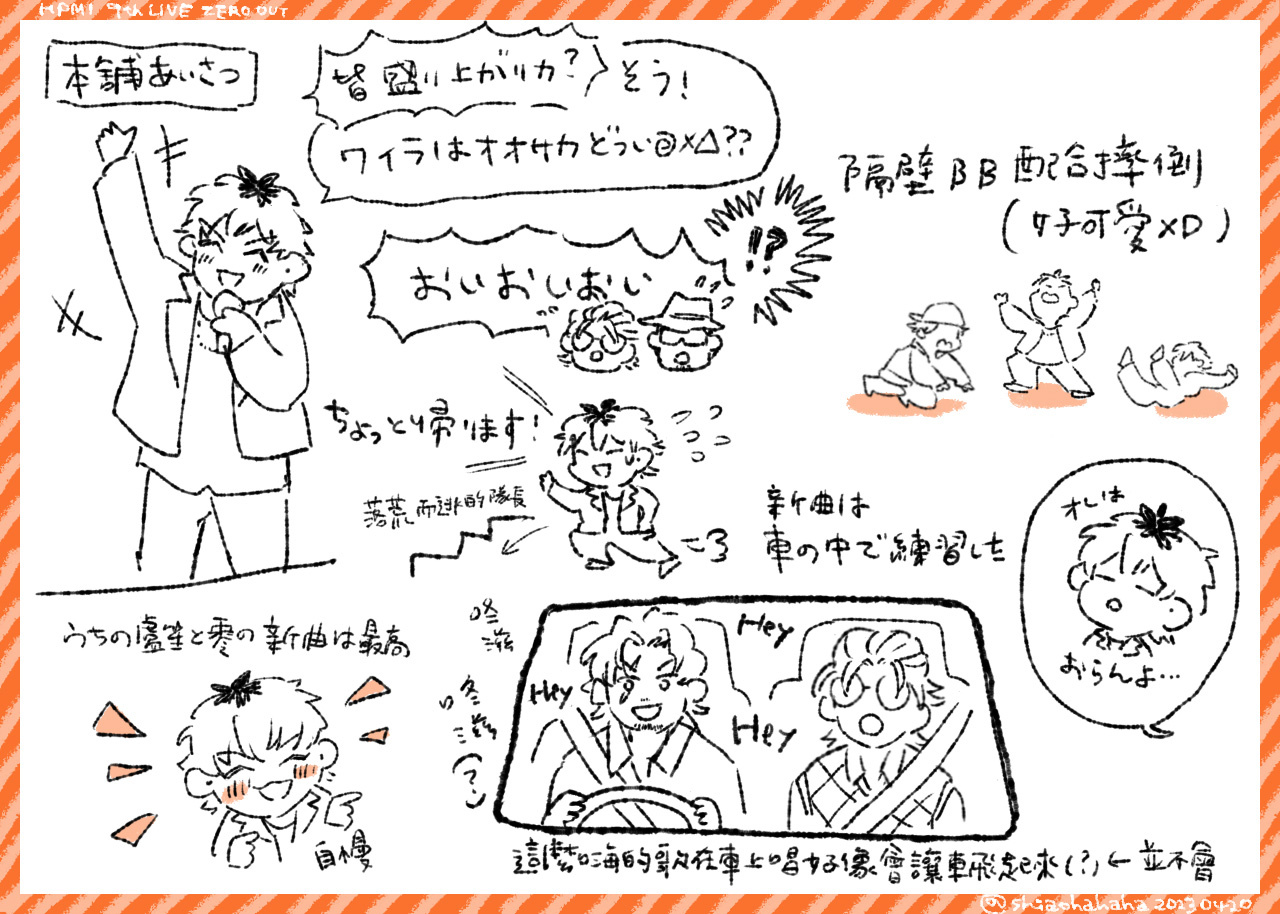 HPMI 9th LIVE ZERO OUT
本舗あいさつ
皆盛り上がりカ?
そう!
ワイラはオオサカどつい@×△??
おいおいおい
!?
隔壁BB配合摔倒
(好可愛XD)
ちょっと帰ります!
落荒而逃的隊長
新曲は
車の中で練習した
オレは
おらんよ…
うちの盧笙と零の新曲は最高
自慢
咚
滋
咚
滋
(?)
Hey
Hey
Hey
這麼嗨的歌在車上唱好像會讓車飛起來(?)←並不會
@shiaohahaha 20230420